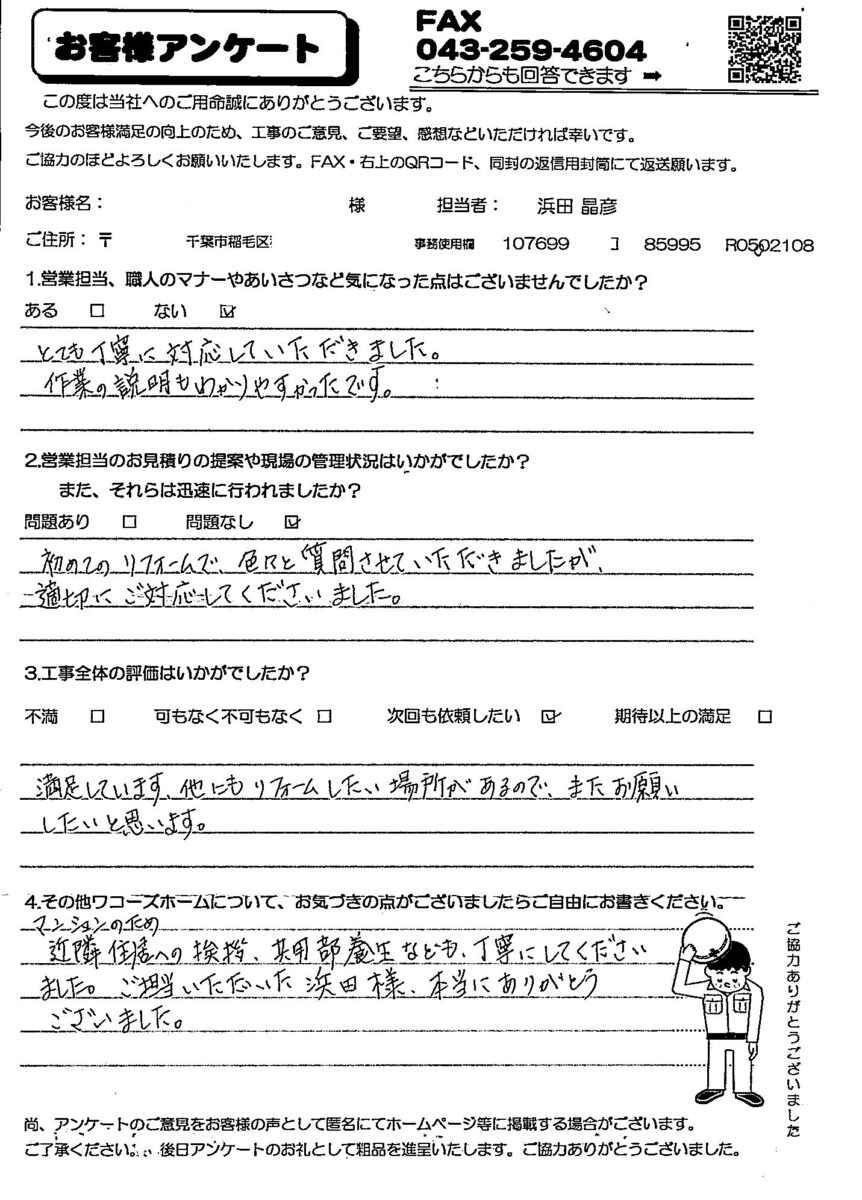 お客様アンケート
FAX
043-259-4604
こちらからも回答できます ➡
この度は当社へのご用命誠にありがとうございます。
今後のお客様満足の向上のため、工事のご意見、ご要望、感想などいただければ幸いです。
ご協力のほどよろしくお願いいたします。FAX・右上のQRコード、同封の返信用封筒にて返送願います。
お客様名： 様 担当者： 浜田 晶彦
ご住所：〒 千葉市稲毛区 事務使用欄 107699 85995 R0502108
1.営業担当、職人のマナーやあいさつなど気になった点はございませんでしたか？
ある □ ない ☑
とても丁寧に対応していただきました。
作業の説明もわかりやすかったです。
2.営業担当のお見積りの提案や現場の管理状況はいかがでしたか？
また、それらは迅速に行われましたか？
問題あり □ 問題なし ☑
初めてのリフォームで、色々と質問させていただきましたが、
適切にご対応してくださいました。
3.工事全体の評価はいかがでしたか？
不満 □ 可もなく不可もなく □ 次回も依頼したい ☑ 期待以上の満足 □
満足しています、他にもリフォームしたい場所があるので、またお願い
したいと思います。
4.その他ワコーズホームについて、お気づきの点がございましたらご自由にお書きください。
マンションのため
近隣住居への挨拶、共用部養生なども、丁寧にしてください
ました。ご担当いただいた浜田様、本当にありがとう
ございました。
ご協力ありがとうございました
尚、アンケートのご意見をお客様の声として匿名にてホームページ等に掲載する場合がございます。
ご了承ください。後日アンケートのお礼として粗品を進呈いたします。ご協力ありがとうございました。